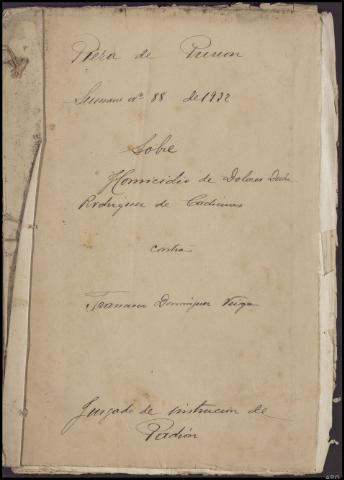 Pieza de Prision
Sumario nº 88 de 1932
Sobre
Homicidio de Dolores
Rodriguez de Cadinas
contra
Francisco Dominguez Veiga
Juzgado de instrucion de
Padrón